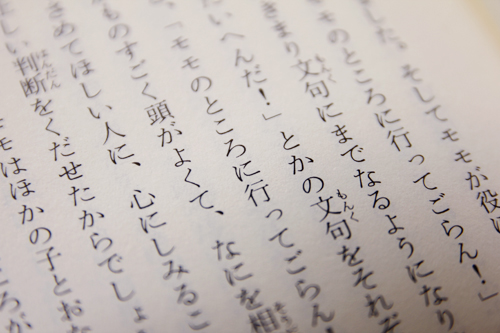 した。そしてモモが役に
モのところに行ってごらん！」
きまり文句にまでなるようになり
いへんだ！」とかの文句をそれぞ
、「モモのところに行ってごらん！
ものすごく頭がよくて、なにを相
さめてほしい人に、心にしみるこ
しい判断をくだせたからでしょ
モはほかの子とおな
ころが